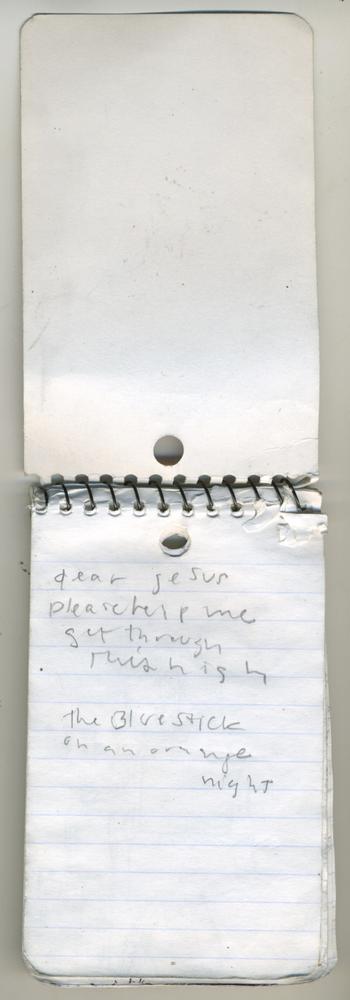 dear jesus
please help me
get through
this high
the Blue STICK
on an orange
night